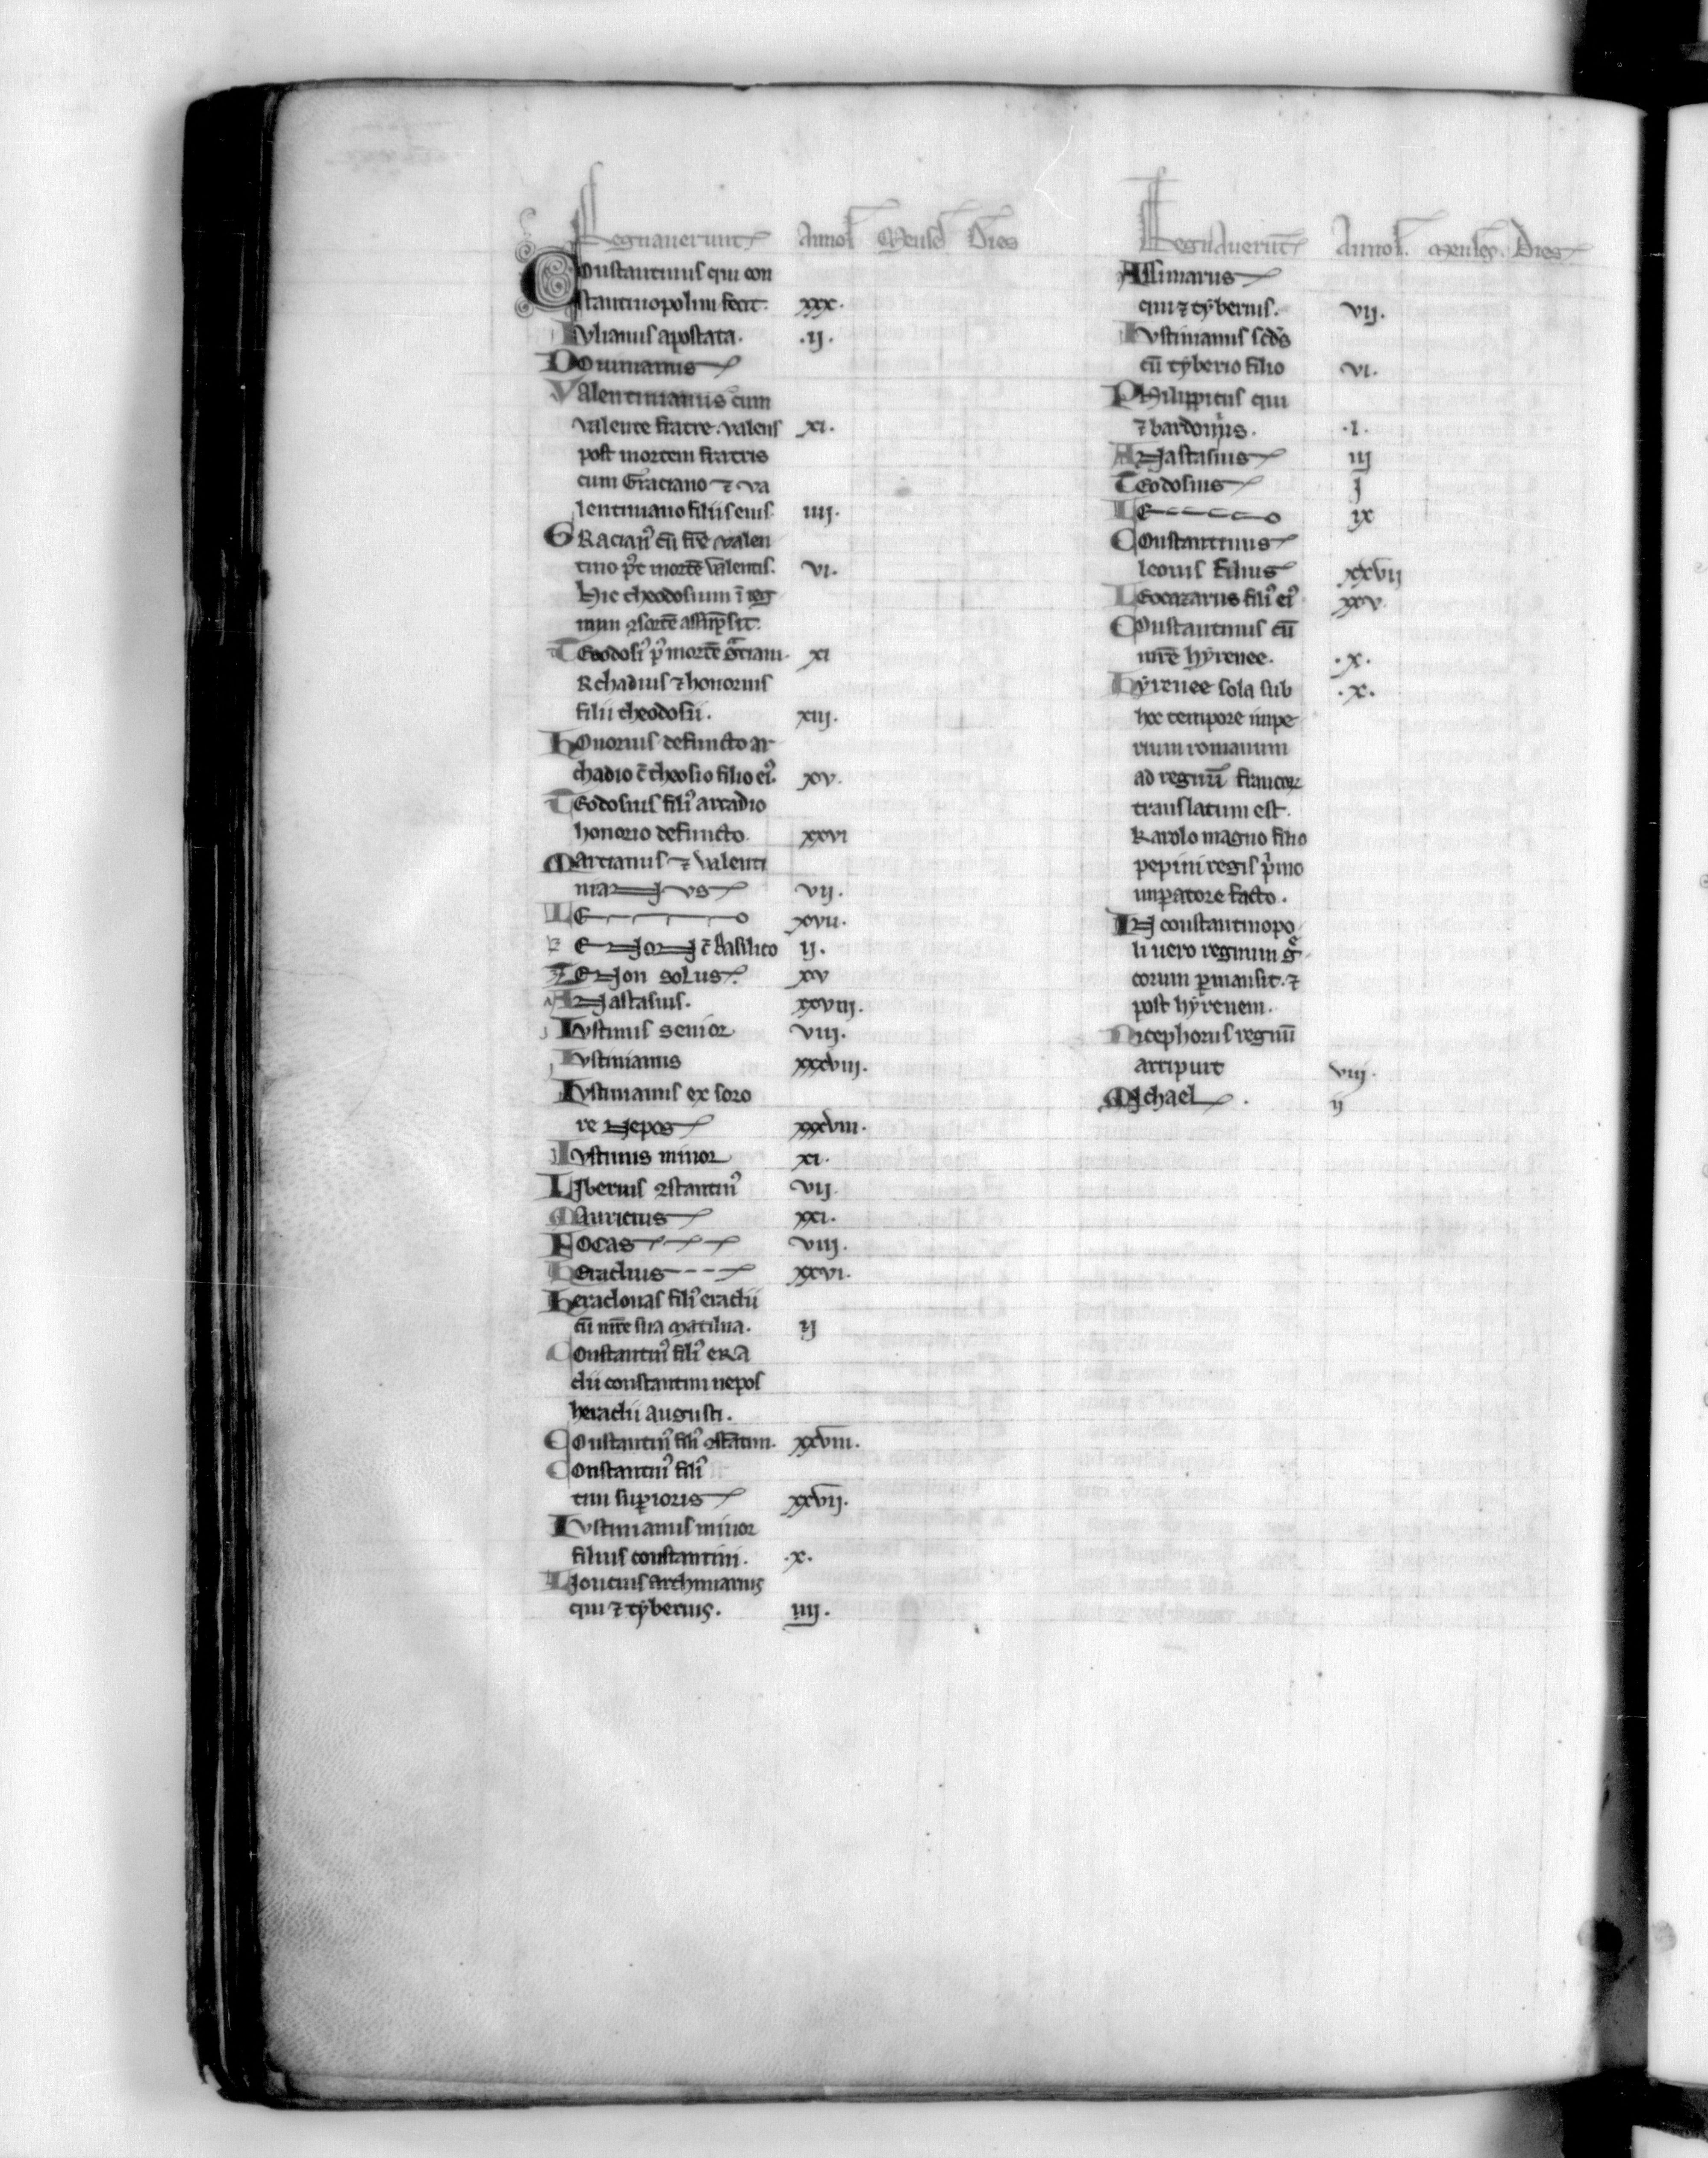 Regnauerunt Annos Menses Dies
Constantinus qui con
stantinopolim fecit. xxx.
Iulianus apostata. .ij.
Iouinianus
Valentinianus cum
valente fratre. valens xi.
post mortem fratris
cum Graciano ⁊ va
lentiniano filiis eius. iiij.
GRacianꝰ cū fr̄e valen
tino pꝰt mortē valentis. vi.
hic theodosium ī reg
mun ꝯsortē assūpsit.
Teodosiꝰ pꝰ mortē gͣciani. xi
Rchadius ⁊ honorius
filii theodosii. xiij.
honorius defuncto ar
chadio c̄ theosio filio eiꝰ. xv.
Teodosius filiꝰ arcadio
honorio defuncto. xxvi
Marcianus ⁊ Valenti
nianus vij.
Leo xvii.
Zenon c̄ basilico ij.
Zenon solus. xv
Anastasius. xxviij.
Iustinus senior viij.
Iustinianus xxxviij.
Iustinianus ex soro
re nepos xxxviii.
Iustinus minor xi.
Liberius ꝯstantinꝰ vij.
Mauricius xxi.
Focas viij.
heraclius xxvi.
heraclonas filiꝰ eraclii
cū mr̄e sua Matilua. ij
Constantinꝰ filiꝰ eRA
clii constantini nepos
heraclii augusti.
Constantinꝰ filiꝰ ꝯstātini. xxviii.
Constantinꝰ filiꝰ
tini suꝑioris xxvij.
Iustinianus minor
filius constantini. .x.
Lioncius archimarius
qui ⁊ tyberius. iiij.
Regnauerūt Annos. menses. Dies
Assimarus
qui ⁊ tyberius. vij.
Iustinianus scd̄s
cū tyberio filio vi.
Philippicus qui
⁊ bardonius. .i.
Anastasius iij
Teodosius j
Leo ix
Constantinus
leonis filius xxvij
Leocazarus filiꝰ eiꝰ xxv.
Constantinus cū
mr̄e hyrenee. .x.
hyrenee sola sub .x.
hoc tempore impe
rium romanum
ad regnū francoꝝ
translatum est.
karolo magno filio
pepini regis pͥmo
imꝑatore facto.
In constantinopo
li uero regnum gͤ
corum ꝑmansit. ⁊
post hyrenem.
Nicephorus regnū
arripuit viij.
Michael. ij